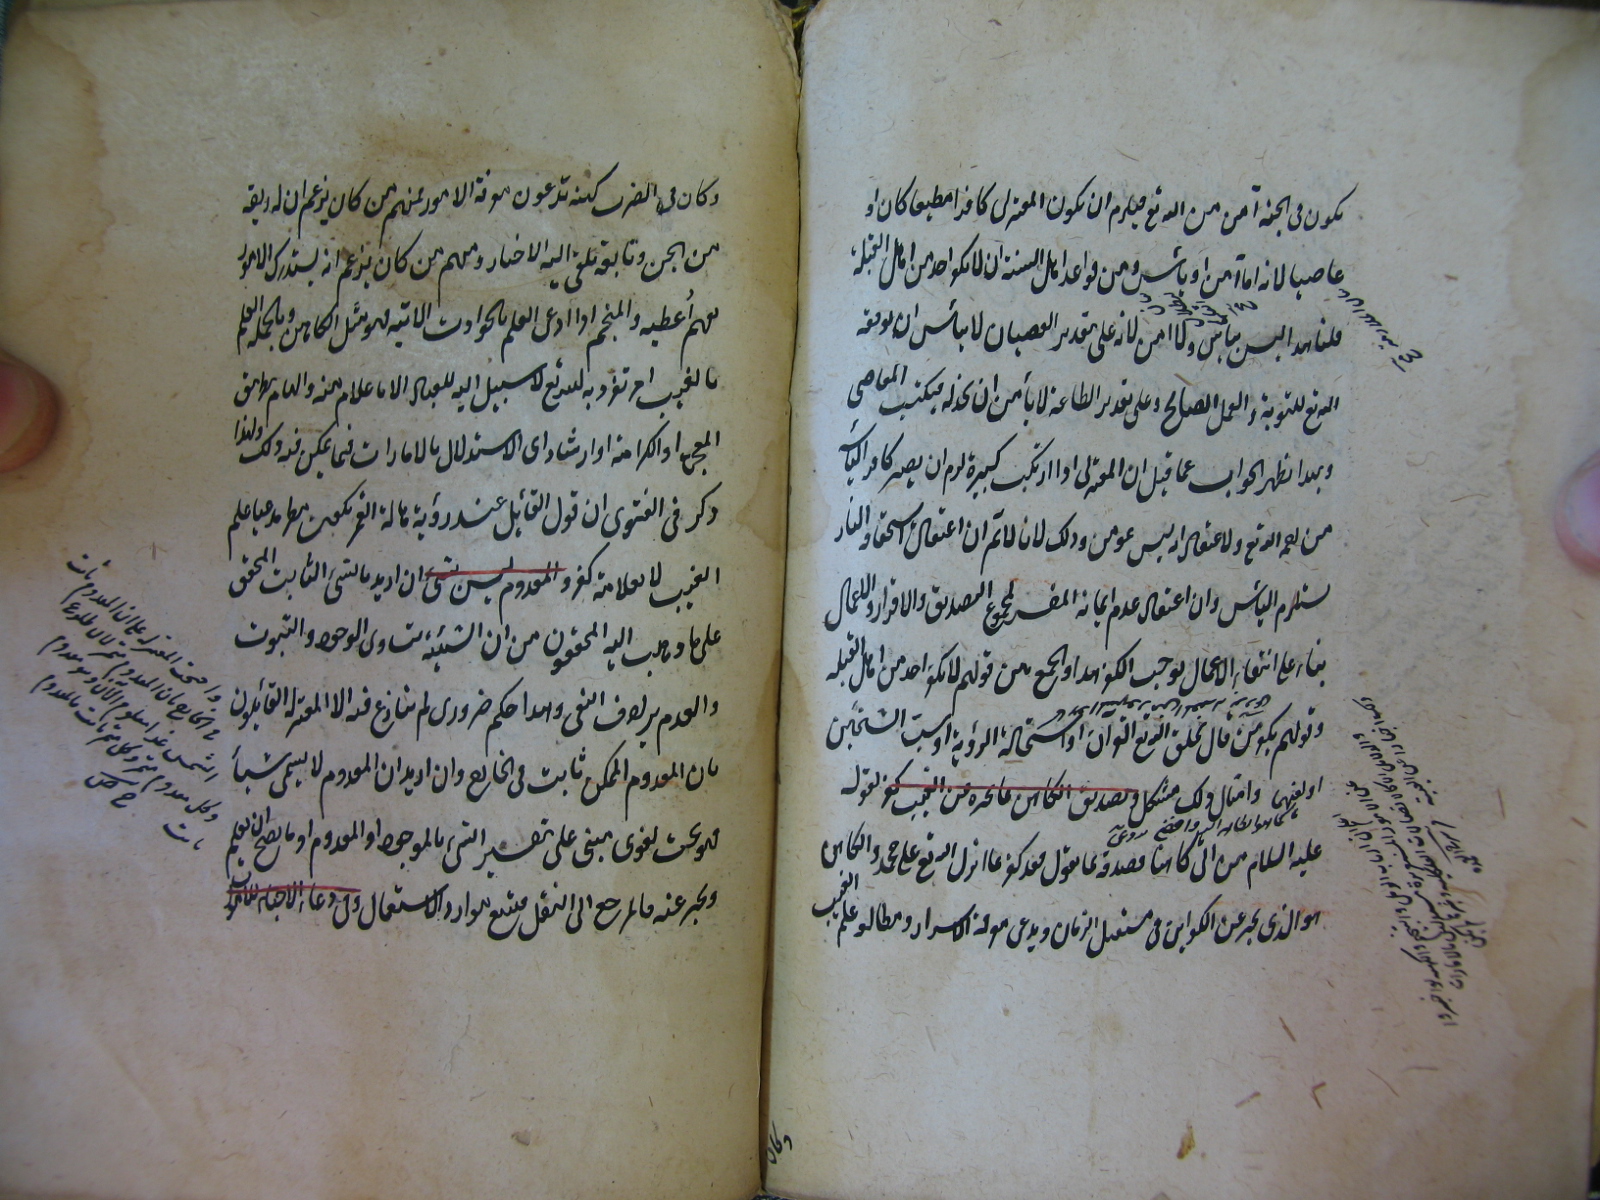 يكون في الجنة آمن من الله تع فيلزم ان يكون المعتزلي كافرا مطيعا كان او
عاصيا لانه اما آمن او يائس ومن قواعد اهل السنة ان لا يكفر احد من اهل القبلة
قلنا هذا ليس بيأس ولا امن لانه على تقدير العصيان لا ييأس ان يوفقه
الله تع للتوبة والعمل الصالح وعلى تقدير الطاعة لا يأمن ان يخذله فيكتسب المعاصي
وبهذا يظهر الجواب عما قيل ان المعتزلي اذا ارتكب كبيرة لزم ان يصير كافرا ليأسه
من رحمة الله تع ولاعتقاده انه ليس بمؤمن وذلك لانا لا نم ان اعتقاد استحقاقه النار
يستلزم اليأس وان اعتقاد عدم ايمانه المفسر بمجموع التصديق والاقرار والاعمال
بناء على انتفاء الاعمال يوجب الكفر هذا والجمع بين قولهم لا يكفر احد من اهل القبلة
وقولهم يكفر من قال بخلق القرآن او استحالة الرؤية او سب الشيخين
او لعنهما وامثال ذلك مشكل وتصديق الكاهن بما يخبره عن الغيب كفر لقوله
عليه السلام من اتى كاهنا فصدقه بما يقول فقد كفر بما انزل الله تع على محمد والكاهن
هو الذي يخبر عن الكوائن في مستقبل الزمان ويدعي معرفة الاسرار ومطالعة علم الغيب
وكان
وكان في العرب كهنة يدعون معرفة الامور فمنهم من كان يزعم ان له رئيا
من الجن وتابعة تلقي اليه الاخبار ومنهم من كان يزعم انه يستدرك الامور
بفهم أعطيه والمنجم اذا ادعى العلم بالحوادث الاتية فهو مثل الكاهن وبالجملة العلم
بالغيب امر تفرد به الله تع لا سبيل اليه للعباد الا باعلام منه والهام بطريق
المعجزة او الكرامة او ارشاد الى الاستدلال بالامارات فيما يمكن فيه ذلك ولهذا
ذكر في الفتوى ان قول القائل عند رؤية هالة القمر يكون مطر مدعيا علم
الغيب لا بعلامة كفر والمعدوم ليس بشئ ان اريد بالشئ الثابت المحقق
على ما ذهب اليه المحققون من ان الشيئية تساوي الوجود والثبوت
والعدم يرادف النفي وهذا حكم ضروري لم ينازع فيه الا المعتزلة القائلون
بان المعدوم الممكن ثابت في الخارج وان اريد ان المعدوم لا يسمى شيأ
فهو بحث لغوي مبني على تفسير الشئ بالموجود او المعدوم او ما يصح ان يعلم
ويخبر عنه فالمرجع الى النقل وتتبع موارد الاستعمال وفي دعاء الاحياء للاموات
واحتجت المعتزلة على ان المعدوم ثابت
في الخارج بان المعدوم متميز لان طلوع
الشمس غدا معلوم الآن وهو معدوم
وكل معدوم متميز وكل متميز ثابت فالمعدوم
ثابت